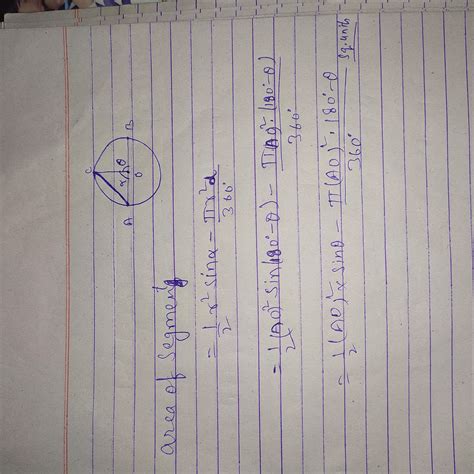 C
α θ
A O B
area of segment
= 1/2 r² sinα − πr²α/360°
= 1/2 (AO)² sin(180°−θ) − πAO²·(180°−θ)/360°
= 1/2 (AO)² × sinθ − π(AO)²·180°−θ/360° sq.units